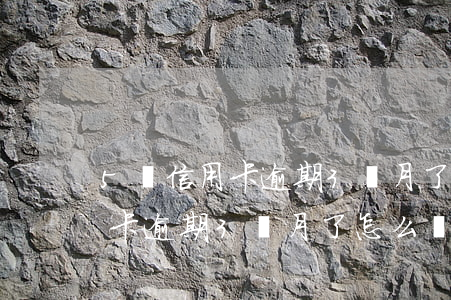 5 信用卡逾期3 月了
卡逾期3 月了怎么